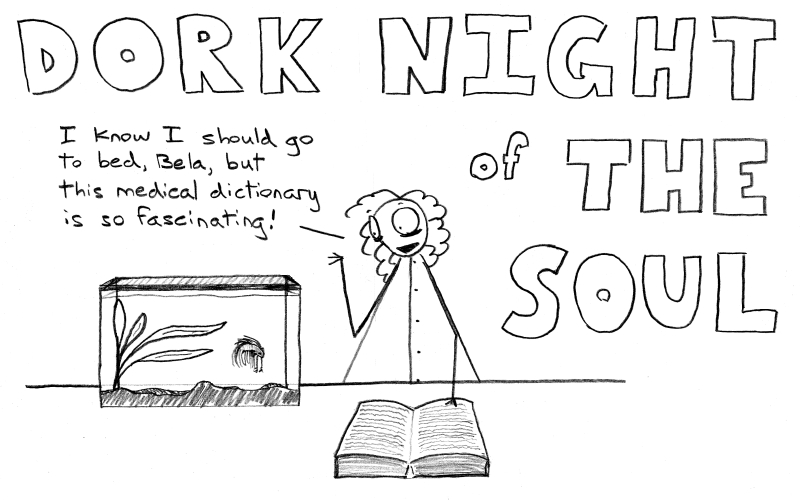 DORK NIGHT
of THE
SOUL
I know I should go
to bed, Bela, but
this medical dictionary
is so fascinating!